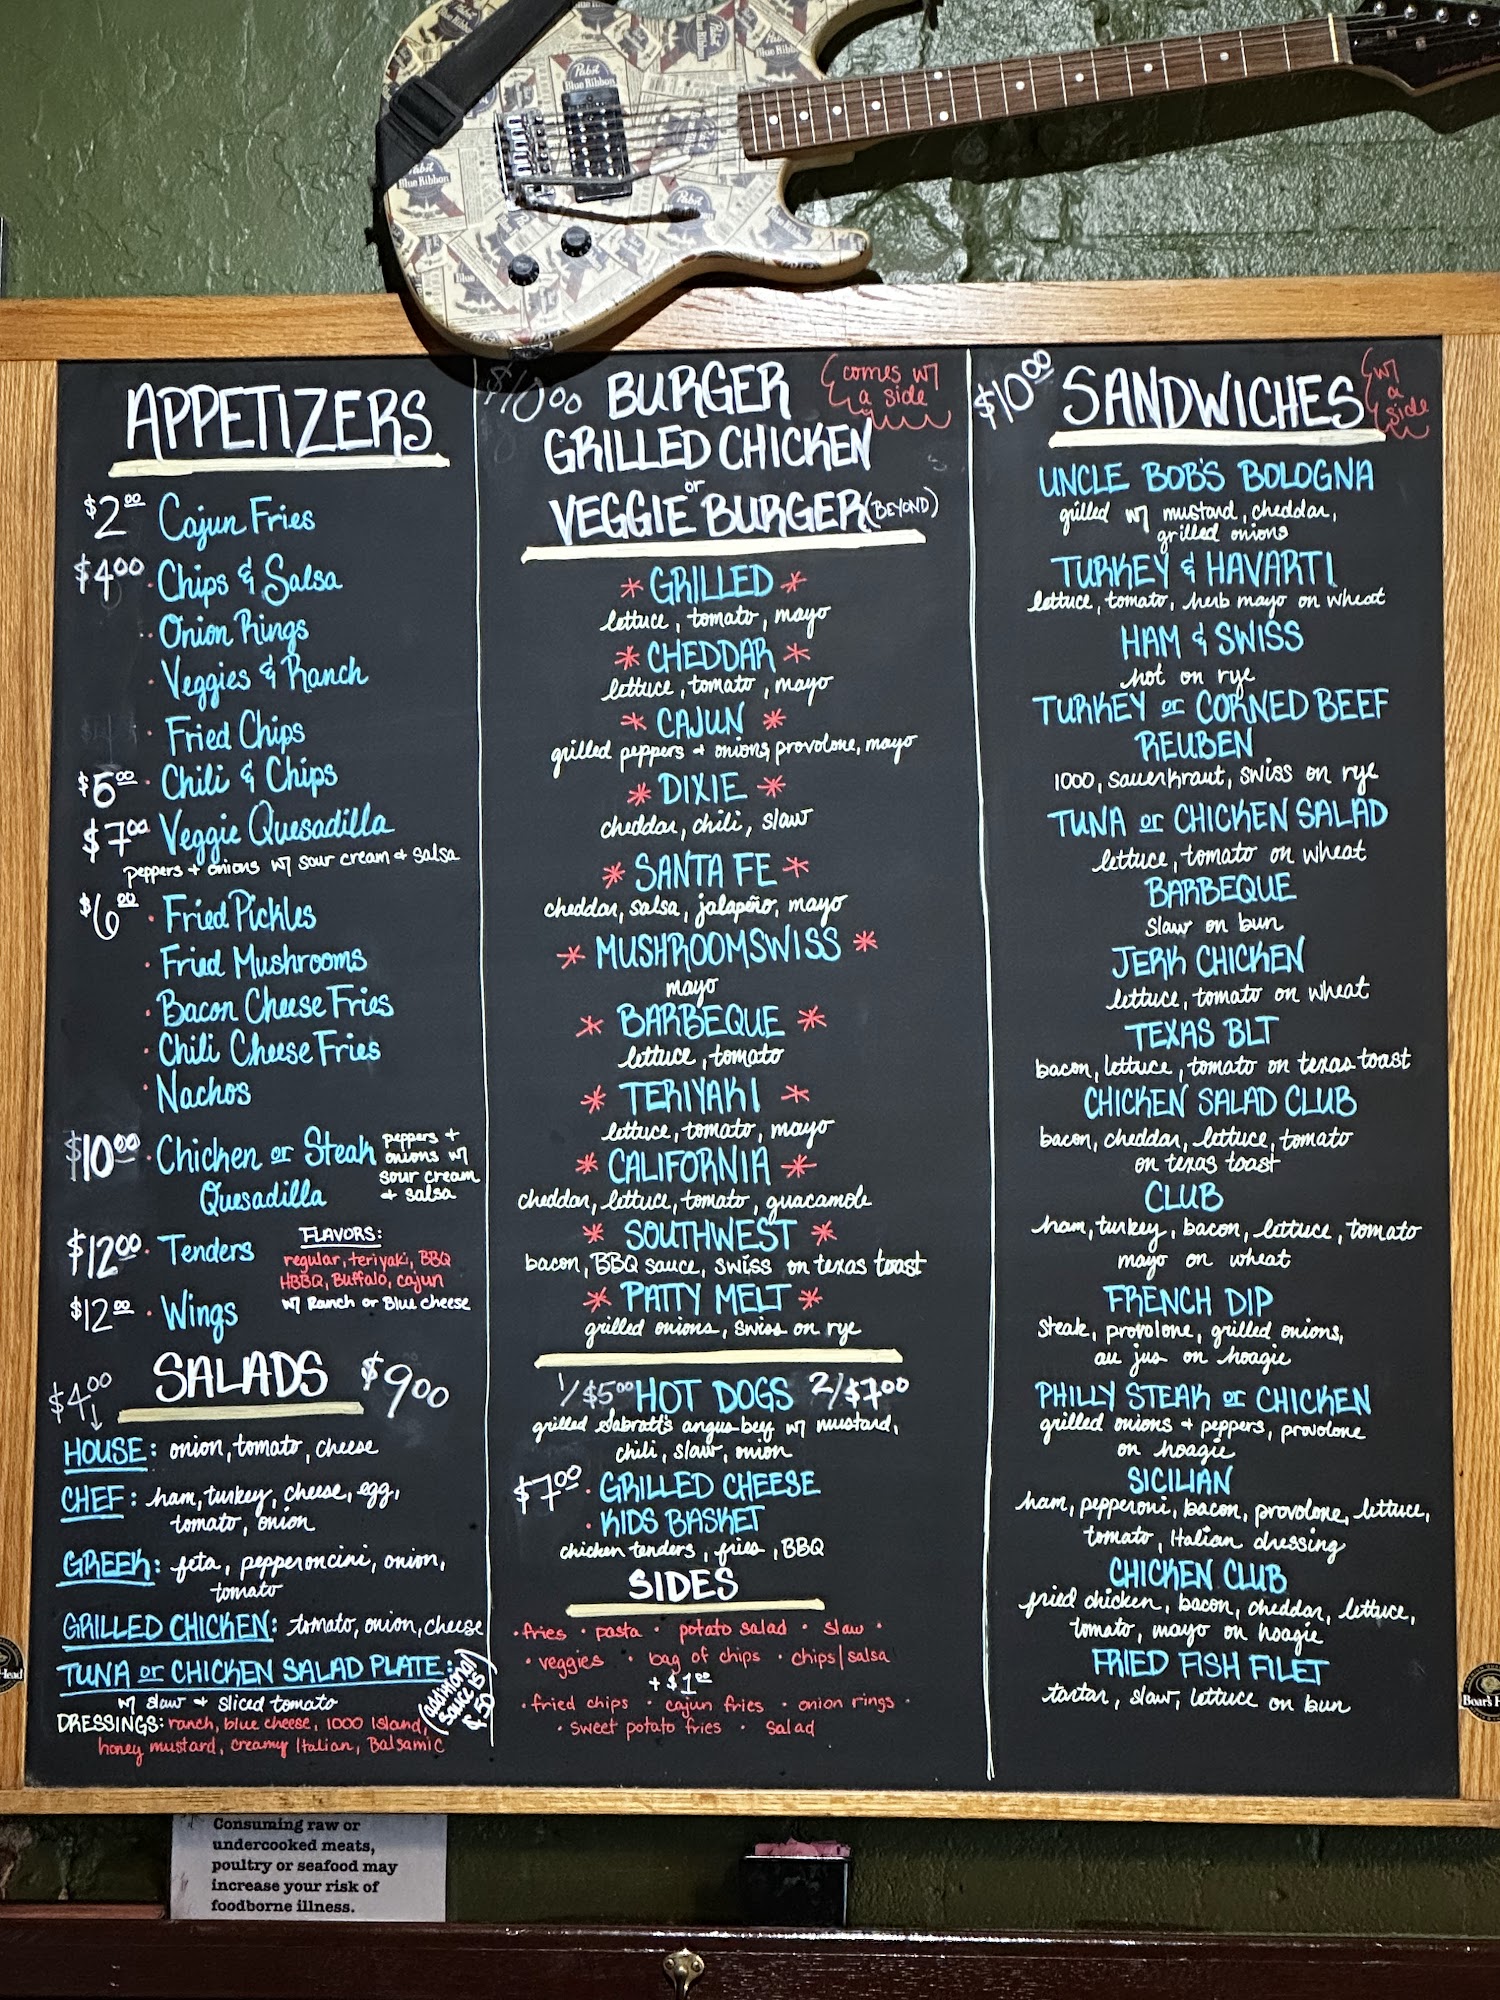 Pabst
Blue Ribbon
Pabst
Blue Ribbon
APPETIZERS
$2.00 Cajun Fries
$4.00 · Chips & Salsa
· Onion Rings
· Veggies & Ranch
Fried Chips
$5.00 · Chili & Chips
$7.00 · Veggie Quesadilla
peppers + onions w/ sour cream + salsa
$6.00 · Fried Pickles
· Fried Mushrooms
· Bacon Cheese Fries
· Chili Cheese Fries
· Nachos
$10.00 · Chicken or Steak
Quesadilla
peppers +
onions w/
sour cream
+ salsa
$12.00 · Tenders
$12.00 · Wings
FLAVORS:
regular, teriyaki, BBQ
HBBQ, Buffalo, cajun
w/ Ranch or Blue cheese
$4.00 SALADS $9.00
HOUSE: onion, tomato, cheese
CHEF: ham, turkey, cheese, egg,
tomato, onion
GREEK: feta, pepperoncini, onion,
tomato
GRILLED CHICKEN: tomato, onion, cheese
TUNA or CHICKEN SALAD PLATE:
w/ slaw + sliced tomato
DRESSINGS: ranch, blue cheese, 1000 island,
honey mustard, creamy Italian, Balsamic
(additional
sauce is
$.50)
$10.00 BURGER
{comes w/
a side
GRILLED CHICKEN
or
VEGGIE BURGER (BEYOND)
* GRILLED *
lettuce, tomato, mayo
* CHEDDAR *
lettuce, tomato, mayo
* CAJUN *
grilled peppers + onions, provolone, mayo
* DIXIE *
cheddar, chili, slaw
* SANTA FE *
cheddar, salsa, jalapeño, mayo
* MUSHROOM SWISS *
mayo
* BARBEQUE *
lettuce, tomato
* TERIYAKI *
lettuce, tomato, mayo
* CALIFORNIA *
cheddar, lettuce, tomato, guacamole
* SOUTHWEST *
bacon, BBQ sauce, swiss on texas toast
* PATTY MELT *
grilled onions, swiss on rye
1/$5.00 HOT DOGS 2/$7.00
grilled Sabratt's angus beef w/ mustard,
chili, slaw, onion
$7.00 · GRILLED CHEESE
· KIDS BASKET
chicken tenders, fries, BBQ
SIDES
· fries · pasta · potato salad · slaw ·
· veggies · bag of chips · chips/salsa
+ $1.00
· fried chips · cajun fries · onion rings ·
· sweet potato fries · salad
$10.00 SANDWICHES
{w/
a
side
UNCLE BOB'S BOLOGNA
grilled w/ mustard, cheddar,
grilled onions
TURKEY & HAVARTI
lettuce, tomato, herb mayo on wheat
HAM & SWISS
hot on rye
TURKEY or CORNED BEEF
REUBEN
1000, sauerkraut, swiss on rye
TUNA or CHICKEN SALAD
lettuce, tomato on wheat
BARBEQUE
slaw on bun
JERK CHICKEN
lettuce, tomato on wheat
TEXAS BLT
bacon, lettuce, tomato on texas toast
CHICKEN SALAD CLUB
bacon, cheddar, lettuce, tomato
on texas toast
CLUB
ham, turkey, bacon, lettuce, tomato
mayo on wheat
FRENCH DIP
steak, provolone, grilled onions,
au jus on hoagie
PHILLY STEAK or CHICKEN
grilled onions + peppers, provolone
on hoagie
SICILIAN
ham, pepperoni, bacon, provolone, lettuce,
tomato, Italian dressing
CHICKEN CLUB
fried chicken, bacon, cheddar, lettuce,
tomato, mayo on hoagie
FRIED FISH FILET
tartar, slaw, lettuce on bun
Head
Boar's H
Consuming raw or
undercooked meats,
poultry or seafood may
increase your risk of
foodborne illness.